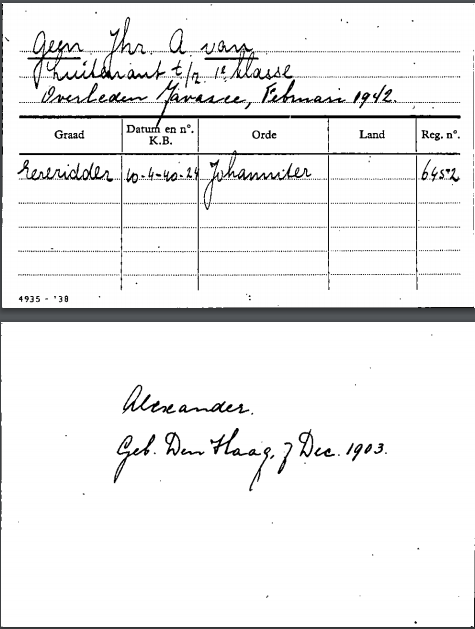 Geen Jhr. A van
Luitenant t/z. 1e klasse
Overleden Javazee, Februari 1942.
Graad Datum en nº. K.B. Orde Land Reg. nº.
Eereridder 10-4-40-24 Johanniter 6452
4935 - '38
Alexander.
Geb. Den Haag, 7 Dec. 1903.